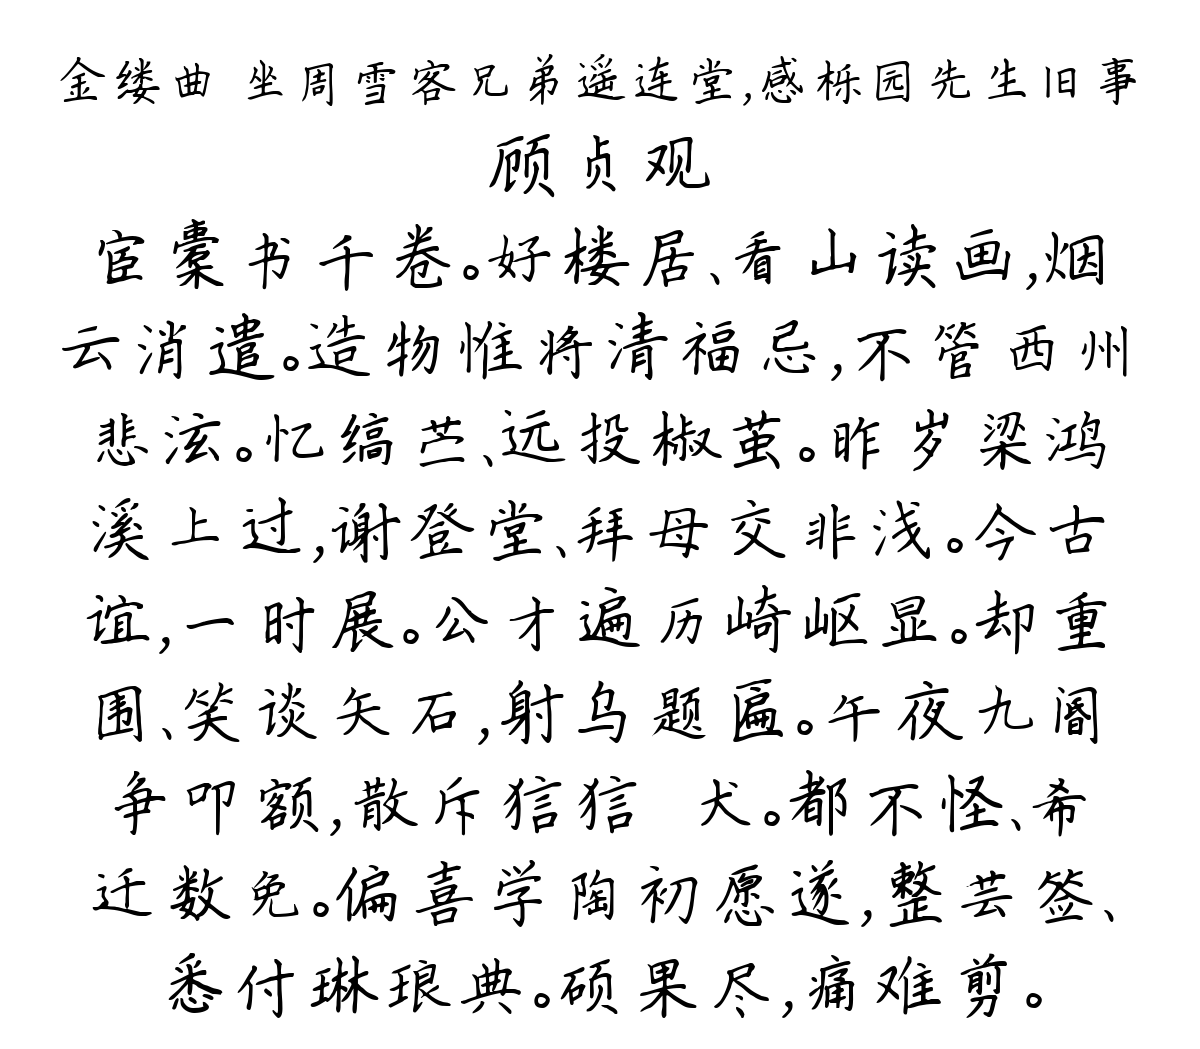 金缕曲 坐周雪客兄弟遥连堂,感栎园先生旧事
顾贞观
宦橐书千卷。好楼居、看山读画,烟
云消遣。造物惟将清福忌,不管西州
悲泫。忆缟苎、远投椒茧。昨岁梁鸿
溪上过,谢登堂、拜母交非浅。今古
谊,一时展。公才遍历崎岖显。却重
围、笑谈矢石,射乌题匾。午夜九阍
争叩额,散斥狺狺 犬。都不怪、希
迁数免。偏喜学陶初愿遂,整芸签、
悉付琳琅典。硕果尽,痛难剪。